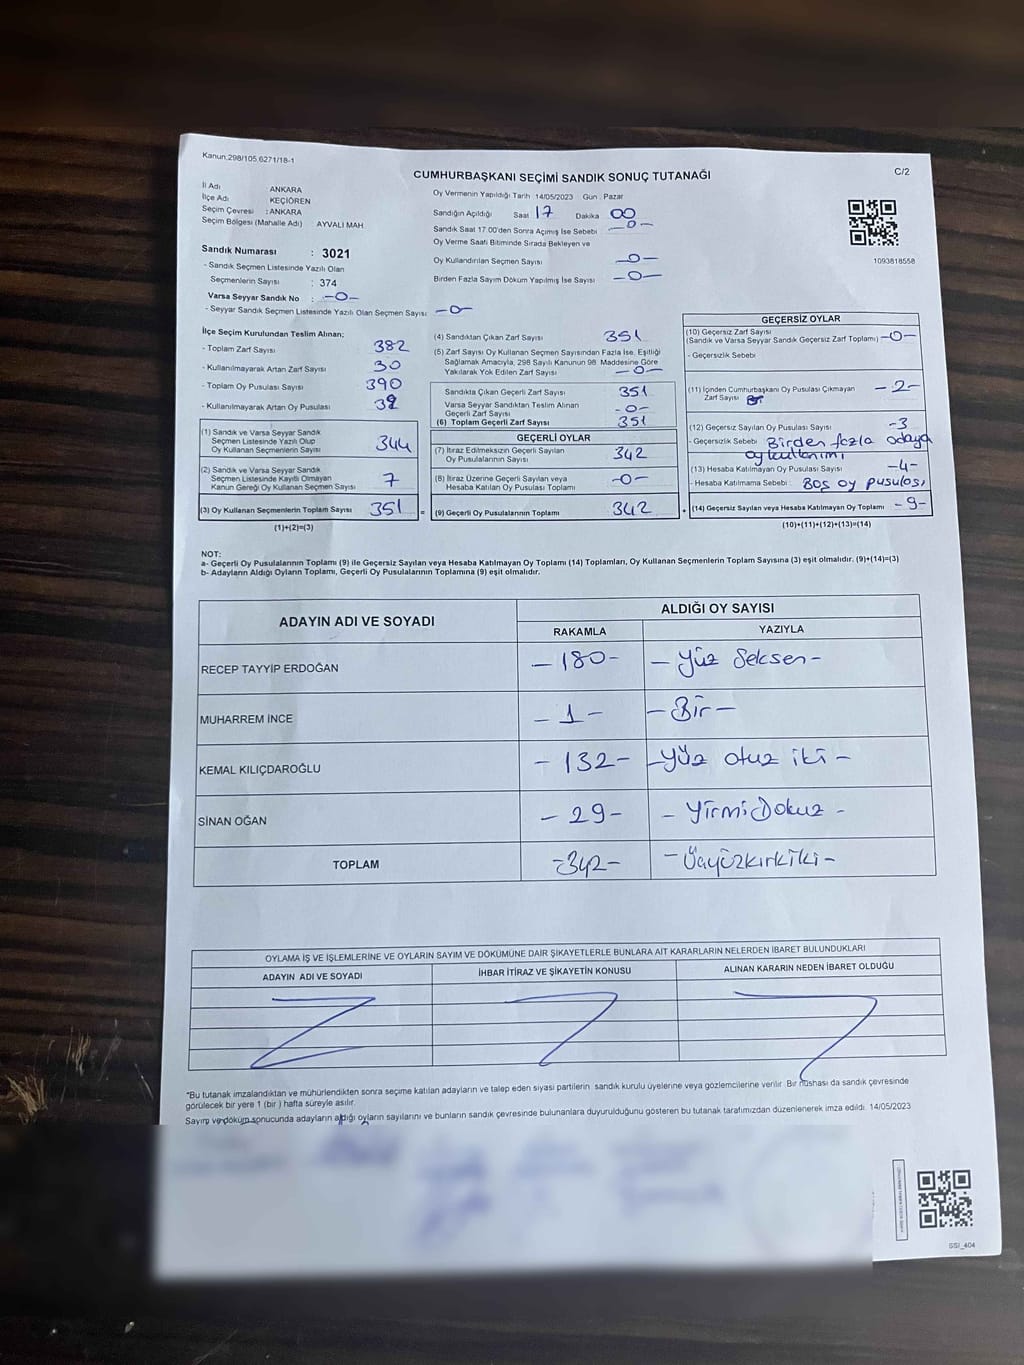 Kanun.298/105.6271/18-1
CUMHURBAŞKANI SEÇİMİ SANDIK SONUÇ TUTANAĞI
C/2
İl Adı ANKARA
İlçe Adı KEÇİÖREN
Seçim Çevresi : ANKARA
Seçim Bölgesi (Mahalle Adı) AYVALI MAH.
Oy Vermenin Yapıldığı Tarih 14/05/2023 Gün : Pazar
Sandığın Açıldığı Saat 17 Dakika 00
Sandık Saat 17.00'den Sonra Açımış İse Sebebi -0-
Oy Verme Saati Bitiminde Sırada Bekleyen ve
Oy Kullandırılan Seçmen Sayısı -0-
Birden Fazla Sayım Döküm Yapılmış İse Sayısı -0-
1093818558
Sandık Numarası : 3021
- Sandık Seçmen Listesinde Yazılı Olan
Seçmenlerin Sayısı : 374
Varsa Seyyar Sandık No : -0-
- Seyyar Sandık Seçmen Listesinde Yazılı Olan Seçmen Sayısı -0-
İlçe Seçim Kurulundan Teslim Alınan;
- Toplam Zarf Sayısı 382
- Kullanılmayarak Artan Zarf Sayısı 30
- Toplam Oy Pusulası Sayısı 390
- Kullanılmayarak Artan Oy Pusulası
(1) Sandık ve Varsa Seyyar Sandık
Seçmen Listesinde Yazılı Olup
Oy Kullanan Seçmenlerin Sayısı 344
(2) Sandık ve Varsa Seyyar Sandık
Seçmen Listesinde Kayıtlı Olmayan
Kanun Gereği Oy Kullanan Seçmen Sayısı 7
(3) Oy Kullanan Seçmenlerin Toplam Sayısı 351 =
(1)+(2)=(3)
(4) Sandıktan Çıkan Zarf Sayısı 351
(5) Zarf Sayısı Oy Kullanan Seçmen Sayısından Fazla İse, Eşitliği
Sağlamak Amacıyla, 298 Sayılı Kanunun 98. Maddesine Göre
Yakılarak Yok Edilen Zarf Sayısı -0-
Sandıkta Çıkan Geçerli Zarf Sayısı 351
Varsa Seyyar Sandıktan Teslim Alınan
Geçerli Zarf Sayısı -0-
(6) Toplam Geçerli Zarf Sayısı 351
GEÇERLİ OYLAR
(7) İtiraz Edilmeksizin Geçerli Sayılan
Oy Pusulalarının Sayısı 342
(8) İtiraz Üzerine Geçerli Sayılan veya
Hesaba Katılan Oy Pusulası Toplamı -0-
(9) Geçerli Oy Pusulalarının Toplamı 342 +
GEÇERSİZ OYLAR
(10) Geçersiz Zarf Sayısı
(Sandık ve Varsa Seyyar Sandık Geçersiz Zarf Toplamı) -0-
- Geçersizlik Sebebi
(11) İçinden Cumhurbaşkanı Oy Pusulası Çıkmayan
Zarf Sayısı -2-
(12) Geçersiz Sayılan Oy Pusulası Sayısı -3
- Geçersizlik Sebebi Birden fazla adaya
oy kullanımı
(13) Hesaba Katılmayan Oy Pusulası Sayısı -4-
- Hesaba Katılmama Sebebi : Boş oy pusulası
(14) Geçersiz Sayılan veya Hesaba Katılmayan Oy Toplamı -9-
(10)+(11)+(12)+(13)=(14)
NOT:
a- Geçerli Oy Pusulalarının Toplamı (9) ile Geçersiz Sayılan veya Hesaba Katılmayan Oy Toplamı (14) Toplamları, Oy Kullanan Seçmenlerin Toplam Sayısına (3) eşit olmalıdır. (9)+(14)=(3)
b- Adayların Aldığı Oyların Toplamı, Geçerli Oy Pusulalarının Toplamına (9) eşit olmalıdır.
ADAYIN ADI VE SOYADI
ALDIĞI OY SAYISI
RAKAMLA YAZIYLA
RECEP TAYYİP ERDOĞAN -180- -Yüz Seksen-
MUHARREM İNCE -1- -Bir-
KEMAL KILIÇDAROĞLU -132- -Yüz otuz iki-
SİNAN OĞAN -29- -Yirmi Dokuz-
TOPLAM -342- -Üçyüzkırkiki-
OYLAMA İŞ VE İŞLEMLERİNE VE OYLARIN SAYIM VE DÖKÜMÜNE DAİR ŞİKAYETLERLE BUNLARA AİT KARARLARIN NELERDEN İBARET BULUNDUKLARI
ADAYIN ADI VE SOYADI İHBAR İTİRAZ VE ŞİKAYETİN KONUSU ALINAN KARARIN NEDEN İBARET OLDUĞU
*Bu tutanak imzalandıktan ve mühürlendikten sonra seçime katılan adayların ve talep eden siyasi partilerin sandık kurulu üyelerine veya gözlemcilerine verilir. Bir nüshası da sandık çevresinde
görülecek bir yere 1 (bir) hafta süreyle asılır.
Sayım ve döküm sonucunda adayların aldığı oyların sayılarını ve bunların sandık çevresinde bulunanlara duyurulduğunu gösteren bu tutanak tarafımızdan düzenlenerek imza edildi. 14/05/2023
SSI_404